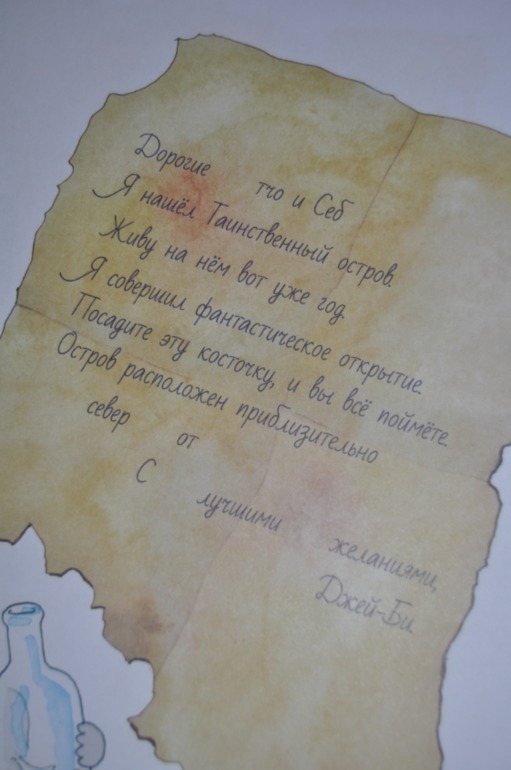 Дорогие тчо и Себ
Я нашёл Таинственный остров.
Живу на нём вот уже год.
Я совершил фантастическое открытие.
Посадите эту косточку, и вы всё поймёте.
Остров расположен приблизительно
север от
С лучшими желаниями,
Джей-Би.